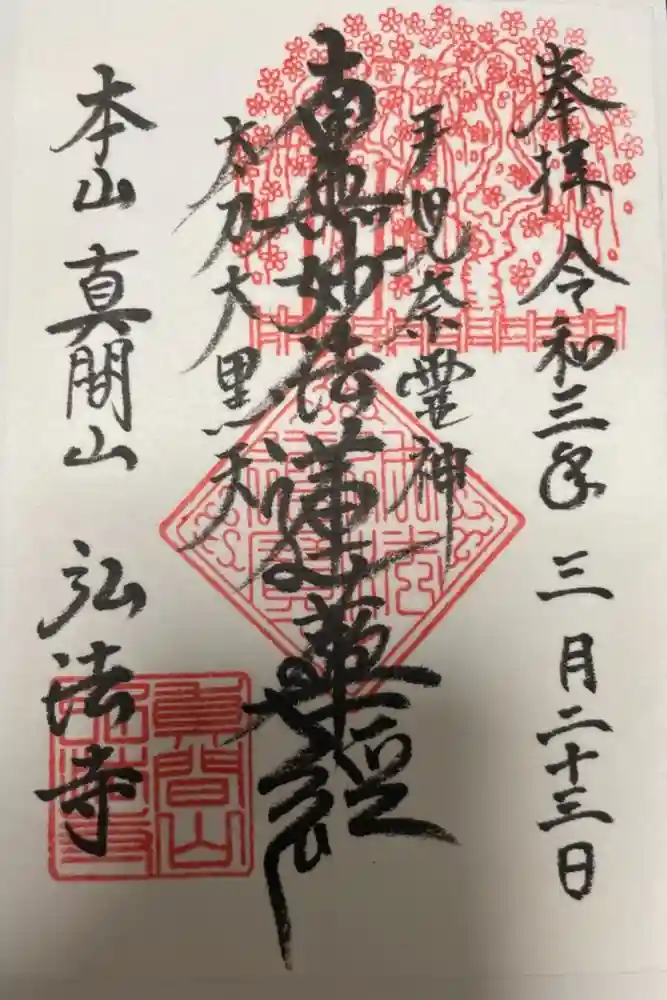 奉拝 令和三年 三月二十三日
手児奈霊神
南無妙法蓮華経
太刀大黒天
本山 真間山 弘法寺
真間山